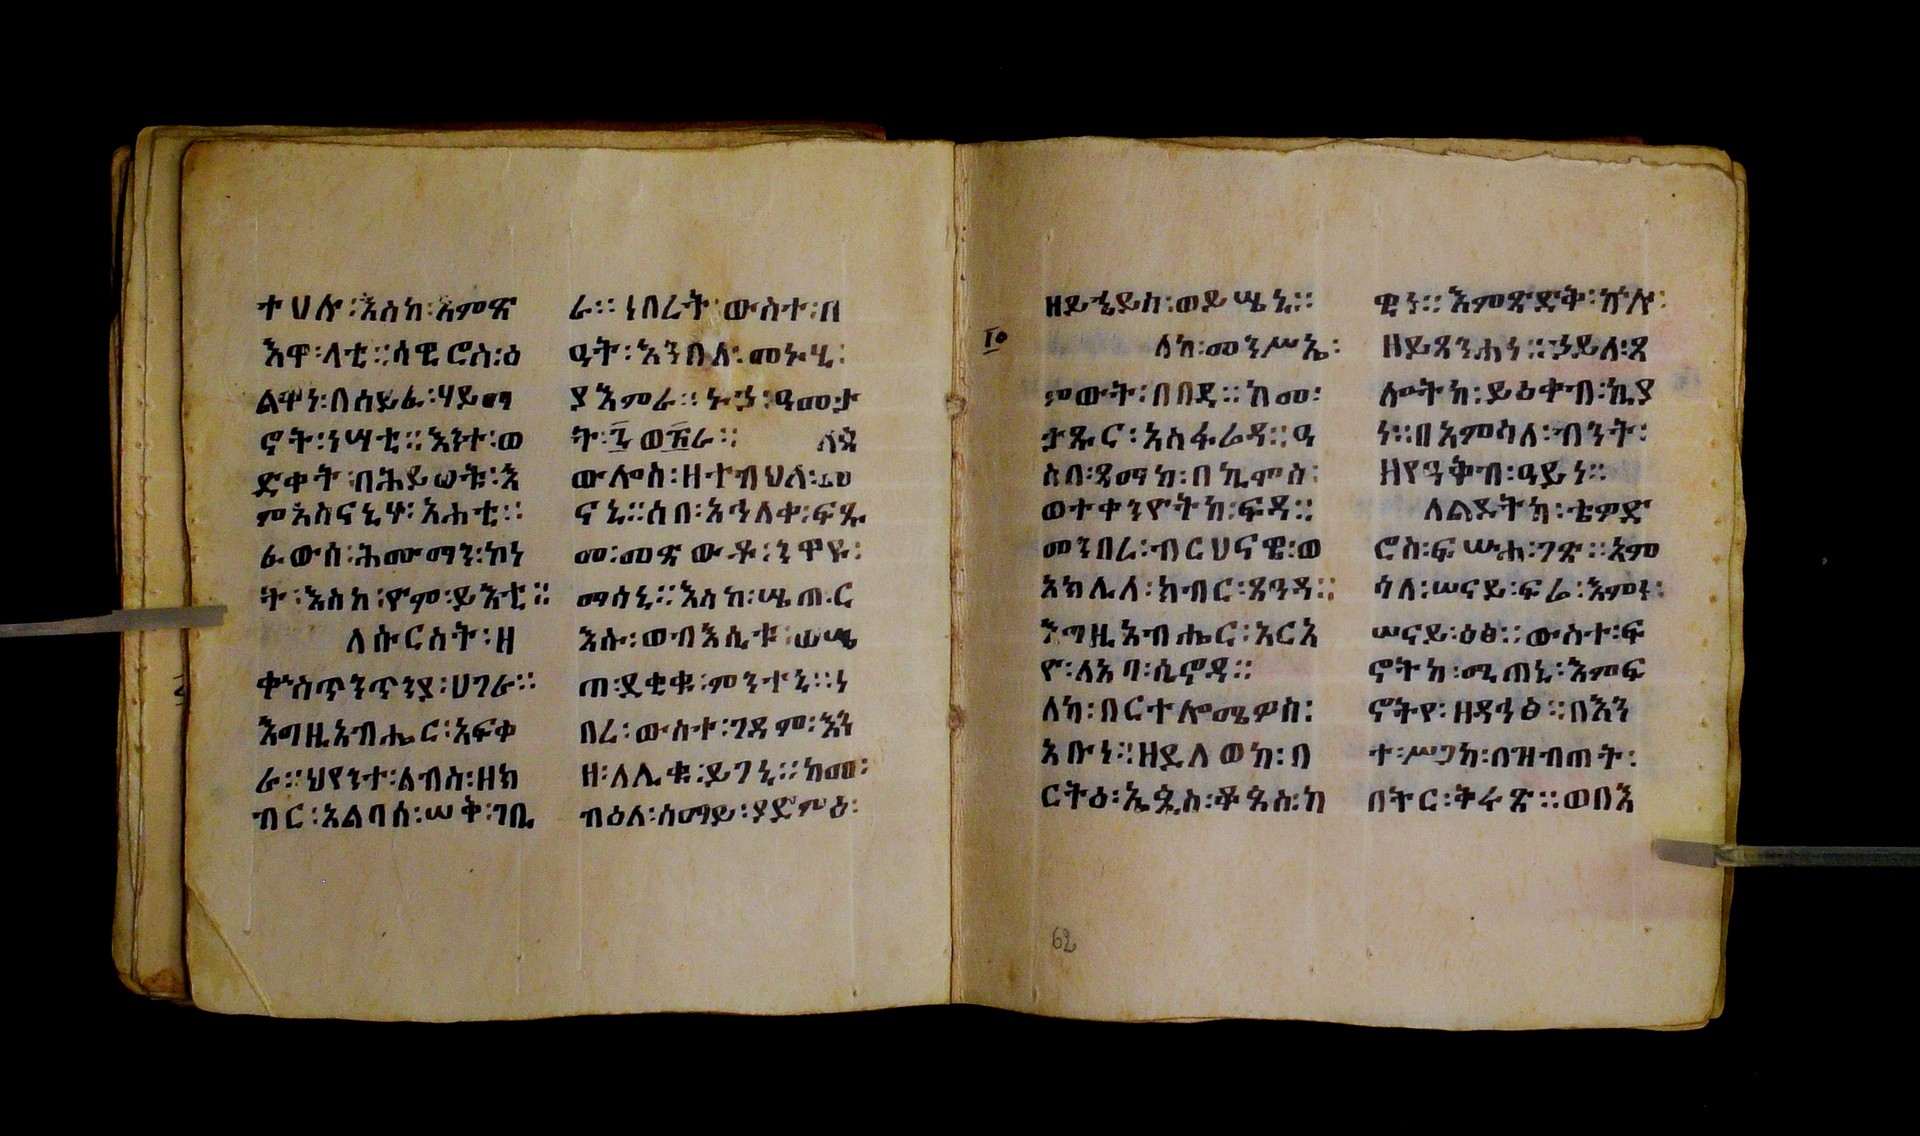 ተሀሉ፡እስከ፡እምጽ
እዋ፡ላቲ።ሳዊሮስ፡ዕ
ልዋነ፡በሰይፈ፡ሃይማ
ኖት፡ነሣቲ።እንተ፡ወ
ድቀት፡በሕይወቱ፡እ
ምእስናኒሃ፡አሐቲ።
ፈውሰ፡ሕሙማን፡ኮነ
ት፡እስከ፡ዮም፡ይእቲ።
ለሱርስት፡ዘ
ቀኍስጥንጥንያ፡ሀገራ።
እግዚአብሔር፡አፍቀ
ራ።ህየንተ፡ልብስ፡ዘክ
ብር፡አልባሰ፡ሠቅ፡ገቢ
ራ።ነበረት፡ውስተ፡በ
ዓት፡እንበለ፡መኑሂ፡
ያእምራ።ኍኃ፡ዓመታ
ት፡
ውሎስ፡ዘተብህለ፡
ናኒ።ሰበ፡አኅለቀ፡ፍጹ
መ፡መጽውዶ፡ንዋዩ፡
ማሰኒ።እስከ፡ሤጠ፡ር
እሱ፡ወብእሲቱ፡ወሤ
ጠ፡ደቂቁ፡ምንተኒ።ነ
በረ፡ውስተ፡ገዳም፡እን
ዘ፡ለሊቁ፡ይገኒ።ከመ፡
ብዕለ፡ሰማይ፡ያድምዕ፡
ዘይኄይስ፡ወይሤኒ።
ለከ፡መንሥኤ፡
ምውት፡በበዲ።ከመ፡
ታጹር፡አስፋሬዳ።ዓ
ስበ፡ጻማከ፡በኪሞስ፡
ወተቀንዮትከ፡ፍዳ።
መንበረ፡ብርሀናዊ፡ወ
አክሊለ፡ክብር፡ጸዓዳ።
እግዚአብሔር፡አርአ
ዮ፡ለአባ፡ሲኖዳ።
ለከ፡በርተሎሜዎስ፡
አቡነ።ዘይለወከ፡በ
ርትዕ፡ኤጲስ፡ቆጶስ፡ከ
ዊን።እምጽድቅ፡ኵሉ፡
ዘይጸንሐነ።ኃይለ፡ጸ
ሎትከ፡ይዕቀብ፡ኪያ
ነ።በአምሳለ፡ብንት፡
ዘየዓቅብ፡ዓይነ።
ለልደትከ፡ቴዎድ
ሮስ፡ፍሡሐ፡ገጽ።አም
ሳለ፡ሠናይ፡ፍሬ፡እምነ፡
ሠናይ፡ዕፅ።ውስተ፡ፍ
ኖትከ፡ሚጠኒ፡እምፍ
ኖትየ፡ዘዳኅፅ።በእን
ተ፡ሥጋከ፡በዝብጠት፡
በትር፡ቅሩጽ።ወበእ
62